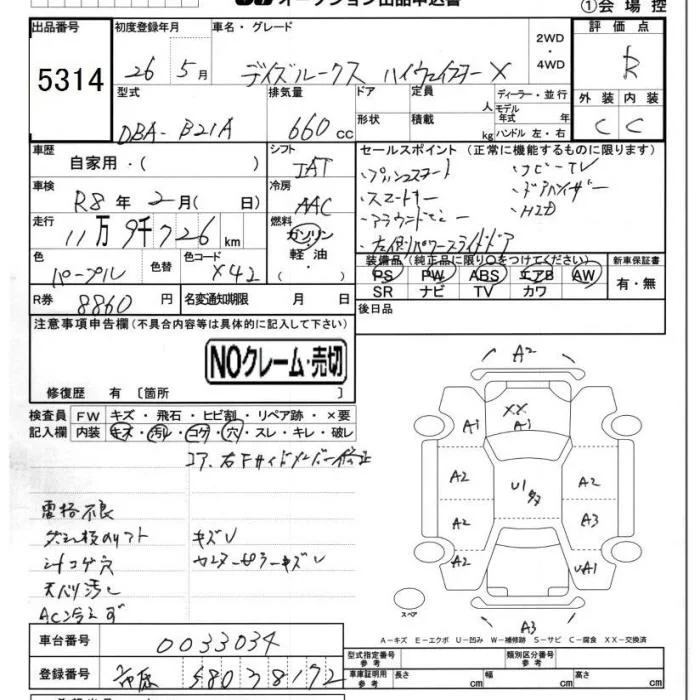 オークション出品申込書
①会場控
出品番号 初度登録年月 車名・グレード 2WD ・ 4WD 評価点
5314 26年 5月 デイズルークス ハイウェイスターX R
型式 排気量 ドア 定員 人 ディーラー・並行 外装 内装
DBA-B21A 660cc 形状 積載 kg モデル年式 年 ハンドル 左・右 C C
車歴 自家用・( ) シフト IAT セールスポイント (正常に機能するものに限ります)
車検 R8年 2月( 日) 冷房 AAC ・プッシュスタート ・ナビーTV
・スマートキー ・ドアバイザー
走行 11万9千726km 燃料 ガソリン 軽油 ・ ・アラウンドモニター ・HID
・左側パワースライドドア
色 パープル 色替 色コード X42 装備品 (純正品に限り○をつけてください) 新車保証書
PS PW ABS エアB AW 有・無
SR ナビ TV カワ
R券 8860円 名変通知期限 月 日 後日品
注意事項申告欄 (不具合内容等は具体的に記入して下さい)
NOクレーム・売切
修復歴 有 〔箇所 〕
検査員記入欄 FW キズ・飛石・ヒビ割・リペア跡・×要
内装 キズ・汚レ・コゲ・穴・スレ・キレ・破レ
コア、右Fサイドメンバー修正
電格不良
キズU
シートコゲ穴
天バリ汚レ
AC冷えず
A2
XX
A1
A1
A2 U1 多 A2
A2 A3
A2 UA1
スペア
A3
A-キズ E-エクボ U-凹み W-補修跡 S-サビ C-腐食 XX-交換済
車台番号 0033034
型式指定番号 参考 類別区分番号 参考
登録番号 580 38172
車庫証明用 参考 長さ cm 幅 cm 高さ cm